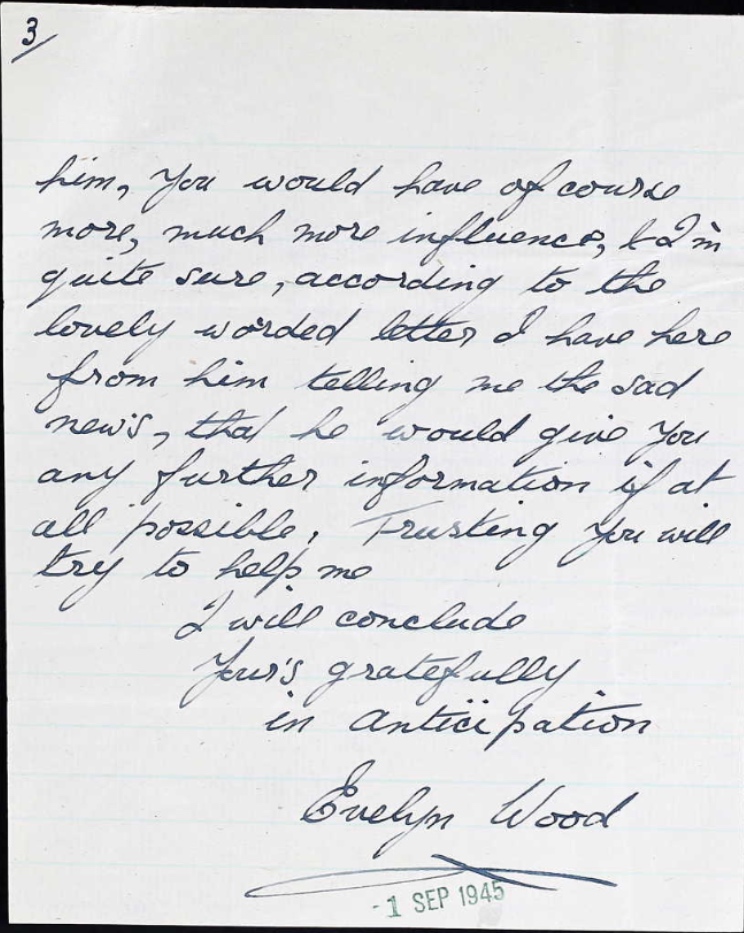 3/
him, You would have of course
more, much more influence, & I'm
quite sure, according to the
lovely worded letter I have here
from him telling me the sad
new's, that he would give You
any further information if at
all possible. Trusting You will
try to help me
I will conclude
Your's gratefully
in anticipation
Evelyn Wood
-1 SEP 1945